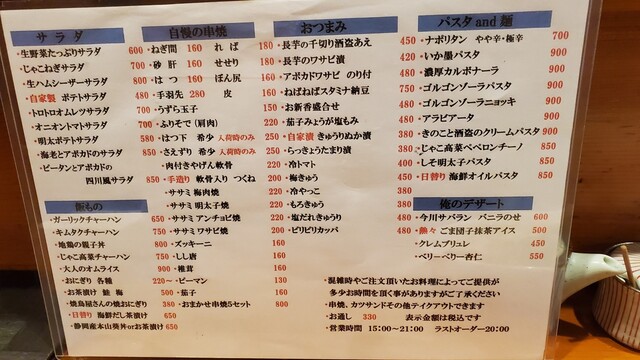 サラダ
・生野菜たっぷりサラダ 600
・じゃこねぎサラダ 700
・生ハムシーザーサラダ 800
・自家製 ポテトサラダ 480
・トロトロオムレツサラダ 700
・オニオントマトサラダ 700
・明太ポテトサラダ 580
・海老とアボカドのサラダ 850
・ピータンとアボカドの
四川風サラダ 850
飯もの
・ガーリックチャーハン 650
・キムタクチャーハン 750
・地鶏の親子丼 800
・じゃこ高菜チャーハン 750
・大人のオムライス 900
・おにぎり 各種 220～
・お茶漬け 鮭 梅 500
・焼鳥屋さんの焼おにぎり 380
・日替り 海鮮だし茶漬け 650
・静岡産本山葵丼orお茶漬け 650
自慢の串焼
・ねぎ間 160 れば 180
・砂肝 160 せせり 180
・はつ 160 ぼん尻 180
・手羽先 280 皮 150
・うずら玉子 220
・ふりそで(肩肉) 250
・はつ下 希少 入荷時のみ 250
・さえずり 希少 入荷時のみ 220
・肉付きやげん軟骨 220
・手造り 軟骨入り つくね 220
・ササミ 梅肉焼
・ササミ 明太子焼
・ササミ アンチョビ焼
・ササミ ワサビ焼
・ズッキーニ 160
・しし唐 160
・椎茸 160
・ピーマン 160
・茄子 160
・おまかせ串焼5セット 800
おつまみ
・長芋の千切り酒盗あえ 450
・長芋のワサビ漬 420
・アボカドワサビ のり付 480
・ねばねばスタミナ納豆 480
・お新香盛合せ 480
・茄子みょうが塩もみ
・自家漬 きゅうりぬか漬
・らっきょうたまり漬
・冷トマト
・梅きゅう
・冷やっこ 380
・もろきゅう 380
・塩だれきゅうり 480
・ピリピリカッパ 480
パスタ and 麺
・ナポリタン やや辛・極辛 700
・いか墨パスタ 900
・濃厚カルボナーラ 900
・ゴルゴンゾーラパスタ 900
・ゴルゴンゾーラニョッキ 900
・アラビアータ 900
・きのこと酒盗のクリームパスタ 900
・じゃこ高菜ペペロンチーノ 850
・しそ明太子パスタ 850
・日替り 海鮮オイルパスタ 850
俺のデザート
・今川サバラン バニラのせ 600
・熱々 ごま団子抹茶アイス 500
・クレムブリュレ 500
・ベリーベリー杏仁 550
・混雑時やご注文頂いたお料理によってご提供が
多少お時間を頂く事がありますがご了承ください
・串焼、カツサンドその他テイクアウトできます
・お通し 330 表示金額は税込です
・営業時間 15:00～21:00 ラストオーダー20:00